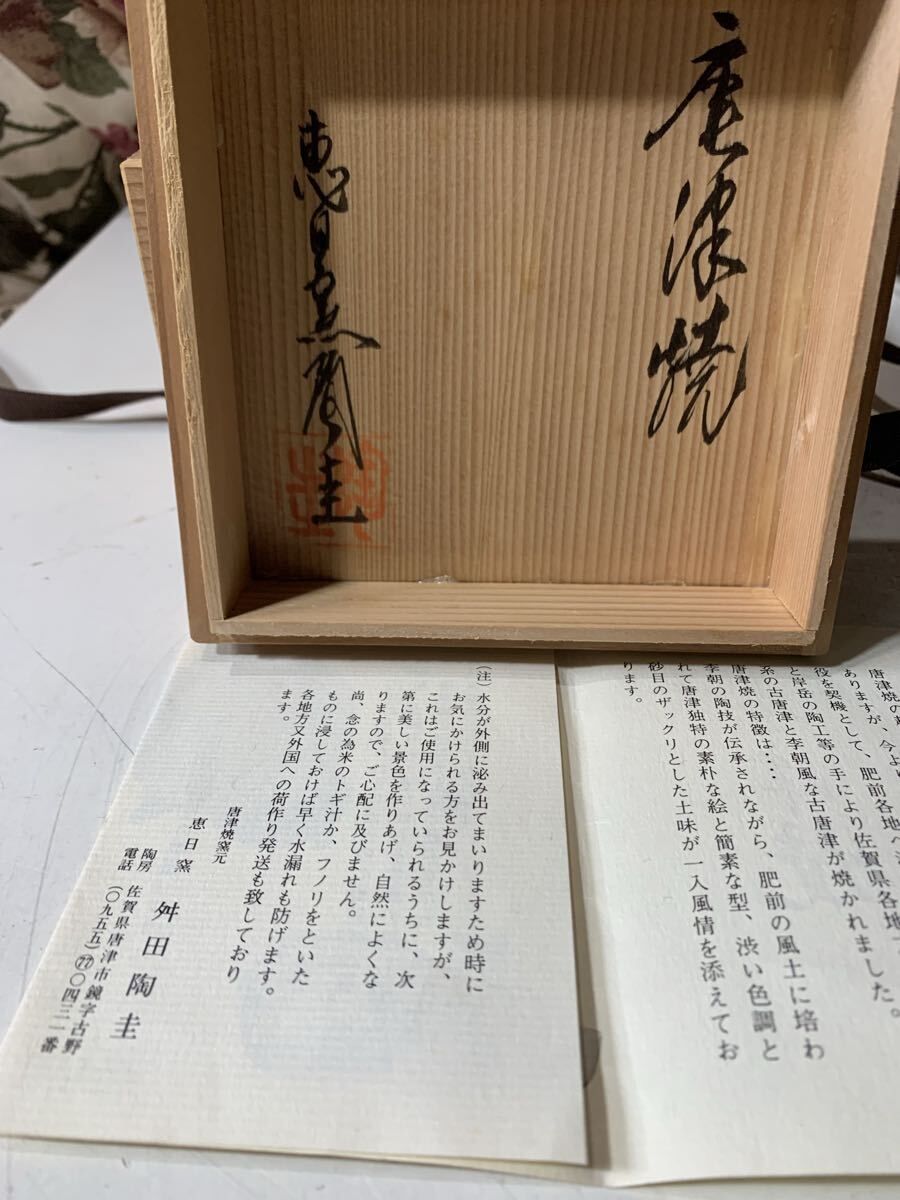 唐津焼
恵日窯陶圭
唐津焼の
ありますが、今より
役を契機として、肥前各地へ
と岸岳の陶工等の手により佐賀県各地
系の古唐津と李朝風な古唐津が焼かれました。
唐津焼の特徴は‥‥
李朝の陶技が伝承されながら、肥前の風土に培わ
れて唐津独特の素朴な絵と簡素な型、渋い色調と
砂目のザックリとした土味が一入風情を添えてお
ります。
(注)水分が外側に泌み出てまいりますため時に
お気にかけられる方をお見かけしますが、
これはご使用になっていられるうちに、次
第に美しい景色を作りあげ、自然によくな
りますので、ご心配に及びません。
尚、念の為米のトギ汁か、フノリをといた
ものに浸しておけば早く水漏れも防げます。
各地方又外国への荷作り発送も致しており
ます。
唐津焼窯元
恵日窯 舛田陶圭
陶房 佐賀県唐津市鏡字古野
電話 (〇九五五)㊆〇四三一番